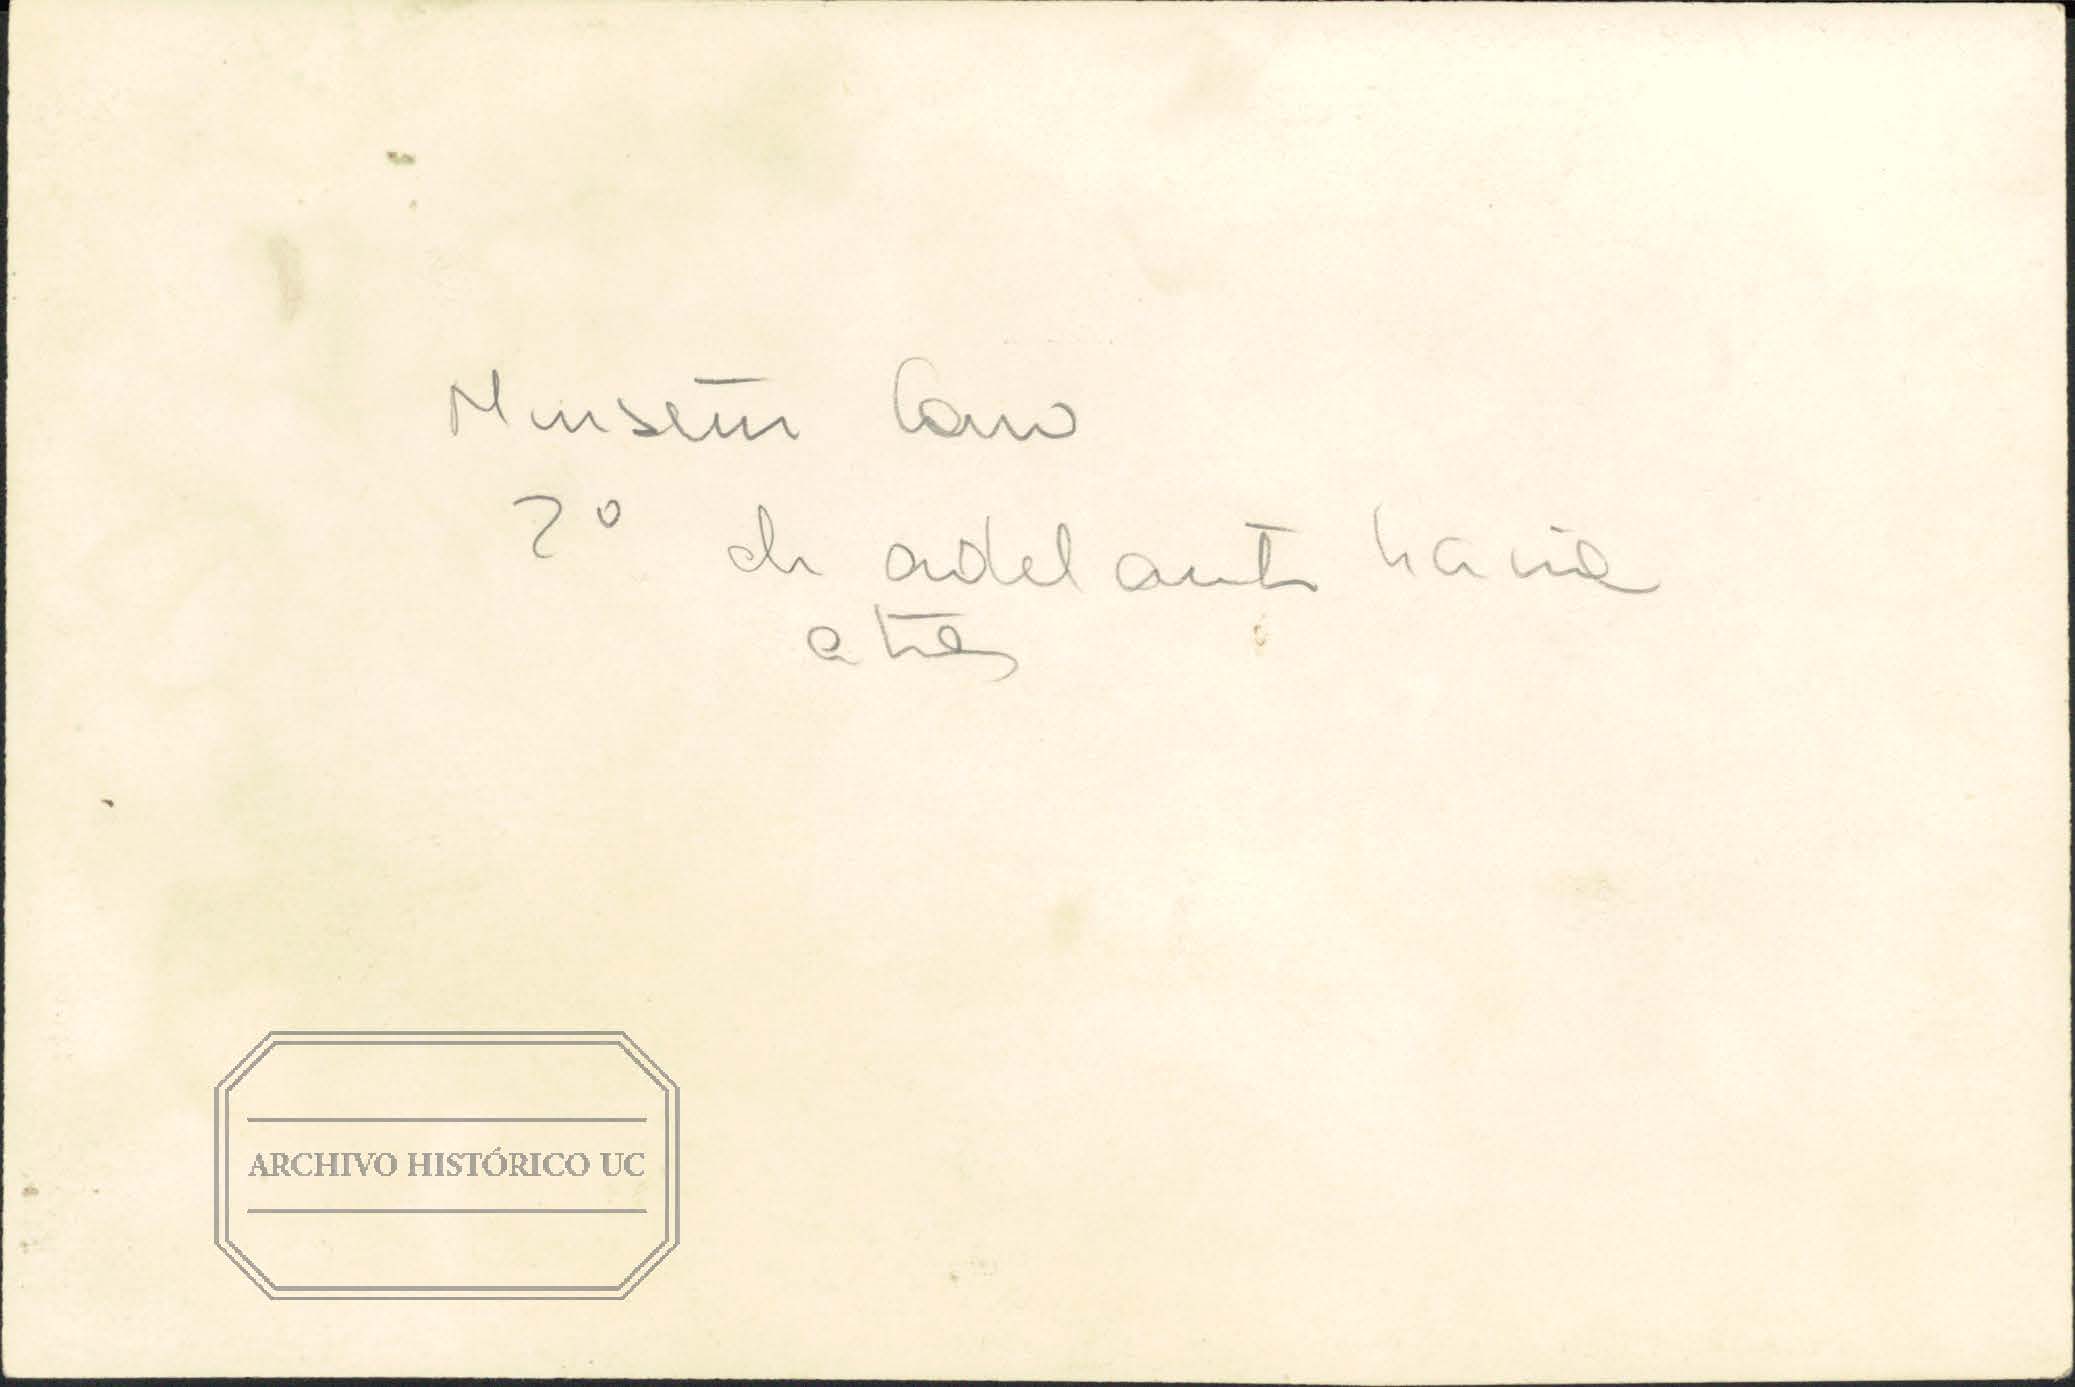 Monseñor Caro
2º de adelante hacia
atrás
ARCHIVO HISTÓRICO UC